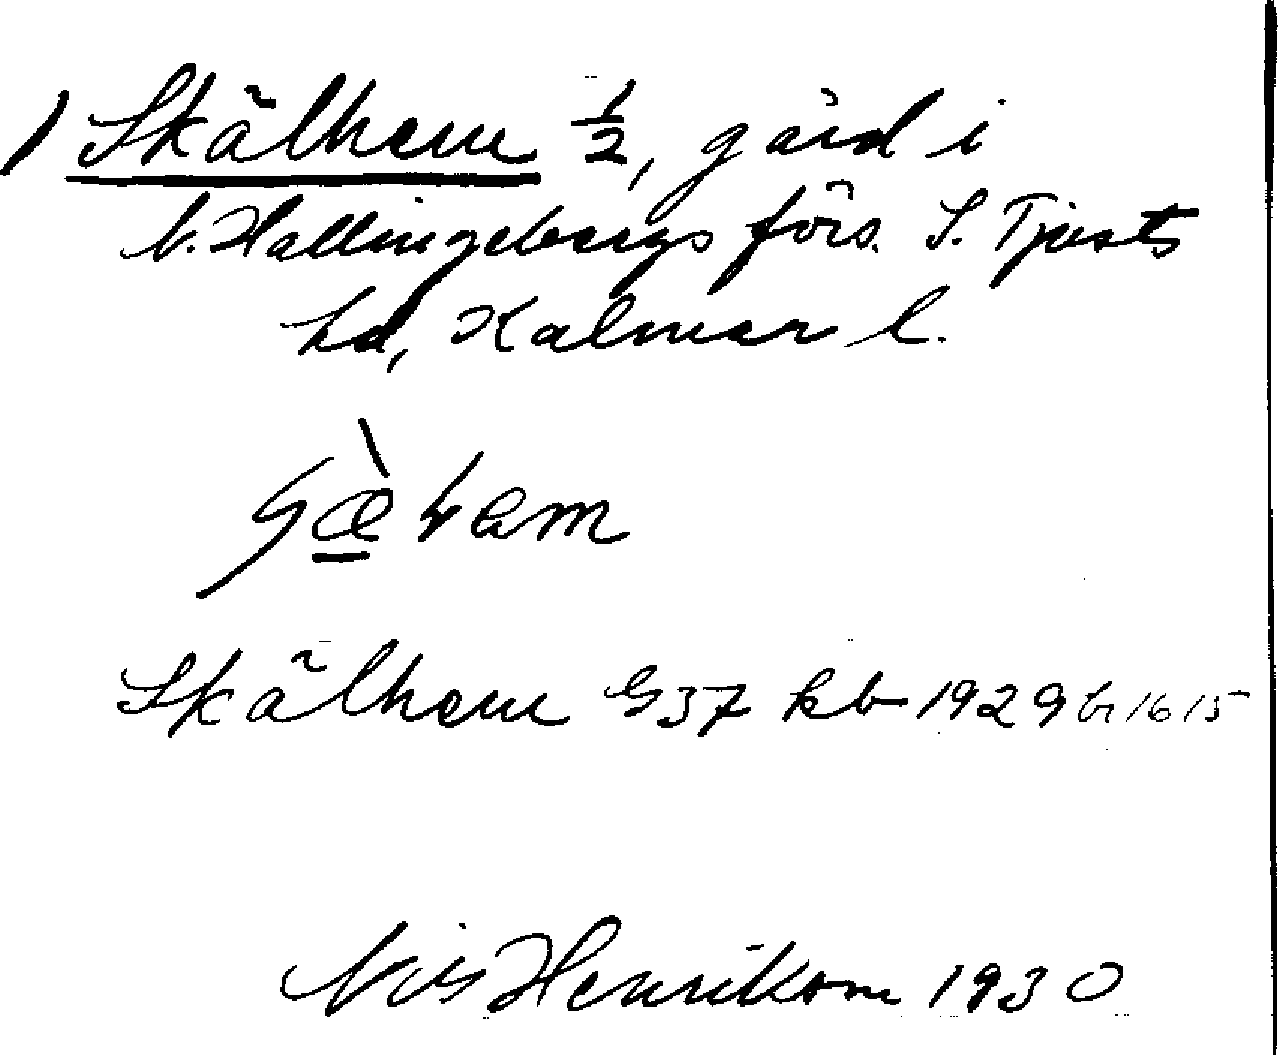 1 Skälhem ½, gård i
b. Hallingebergs förs. S. Tjusts
hd, Kalmar l.
Skälhem G37 kb 1929 br 1615
Nils Henrikson 1930